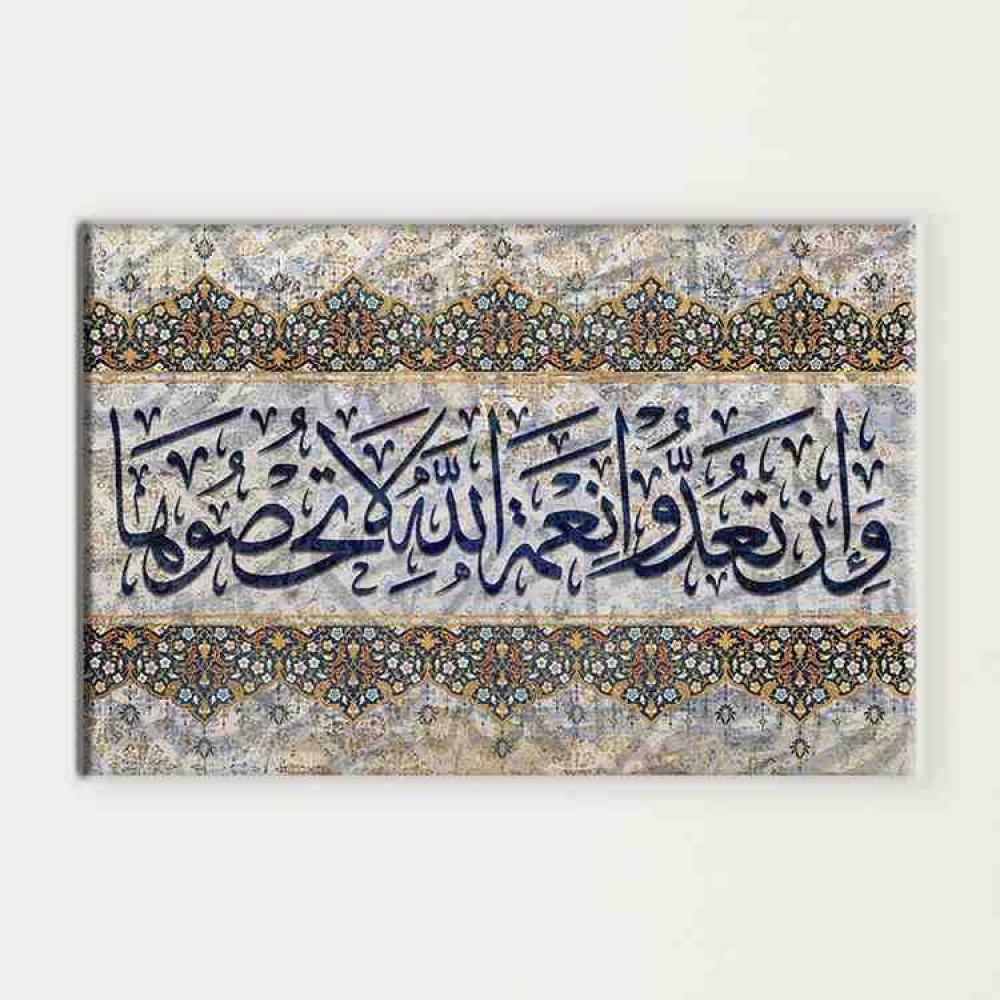 وَإِن تَعُدُّوا۟ نِعْمَةَ اللَّهِ لَا تُحْصُوهَا